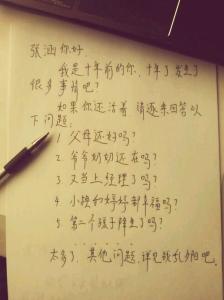 张涵你好
我是十年前的你.十年了发生了
很多事情吧?
如果你还活着 请逐条回答以
下问题:
1. 父母还好吗?
2. 爷爷奶奶还在吗?
3. 又当上经理了吗?
4. 小晚和婷婷都幸福吗?
5. 第二个孩子降生了吗?
太多了,其他问题,详见